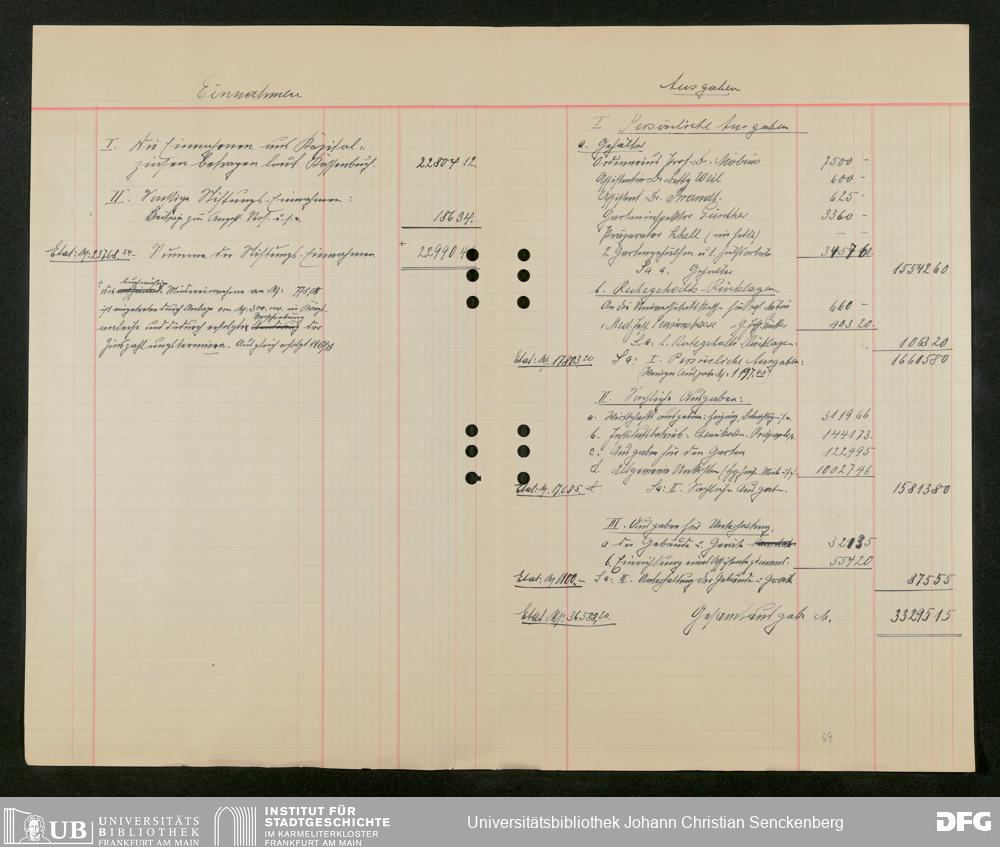 Einnahmen
I. Die Einnahmen aus Kapital-
zinsen betragen laut Kassenbuch. 22804 12.
II. Sonstige Stiftungs-Einnahmen:
186 34.
Etat: M. 23768.54. Summe der Stiftungs-Einnahmen + 22990 4
+ Die Mindereinnahme von M. 778,08
ist eingetreten durch Anlage von M. 300.000. in
anleihe und dadurch erfolgte Verschiebung der
Zinszahlungstermine. Ausgleich erfolgt
Ausgaben
I. Persönliche Ausgaben
a. Gehälter
Ordinarius Prof. Dr. Möbius 7500 –
Assistentin Dr. Betty Weil 600 –
Assistent Dr. Brandt. 625 –
Garteninspektor Günther 3360 –
Präparator Khell – –
2 Gartengehülfen u. 1. 3457 60.
Sa a. Gehälter 15542 60
b. Ruhegehalts-Rücklagen
An die Universitätskasse für Möbius 660 –
403 20.
Sa. b. Ruhegehalts-Rücklagen 1063 20
Etat: M. 17803,20 Sa: I. Persönliche Ausgaben: 16605 80
(Weniger Ausgabe M. 1197.40)
II. Sachliche Ausgaben:
a. Wirtschaftsausgaben: Heizung, 3119 66
b. Institutsbetrieb: Chemikalien 1441 73.
c. Ausgaben für den Garten 1224 95
d. Allgemeine Unkosten 10027 46
Etat: M. 17685 Sa: II. Sachliche Ausgaben. 15813 80
III. Ausgaben für Unterhaltung.
a der Gebäude u. Geräte 321 35
b. Einrichtung eines Assistentenzimmers. 554 20
Etat: M. 1100.– Sa: III. Unterhaltung der Gebäude u. Geräte 875 55
Etat M: 36588,20. Gesamtausgabe M. 33295 15
69
UB UNIVERSITÄTS
BIBLIOTHEK
FRANKFURT AM MAIN
INSTITUT FÜR
STADTGESCHICHTE
IM KARMELITERKLOSTER
FRANKFURT AM MAIN
Universitätsbibliothek Johann Christian Senckenberg
DFG